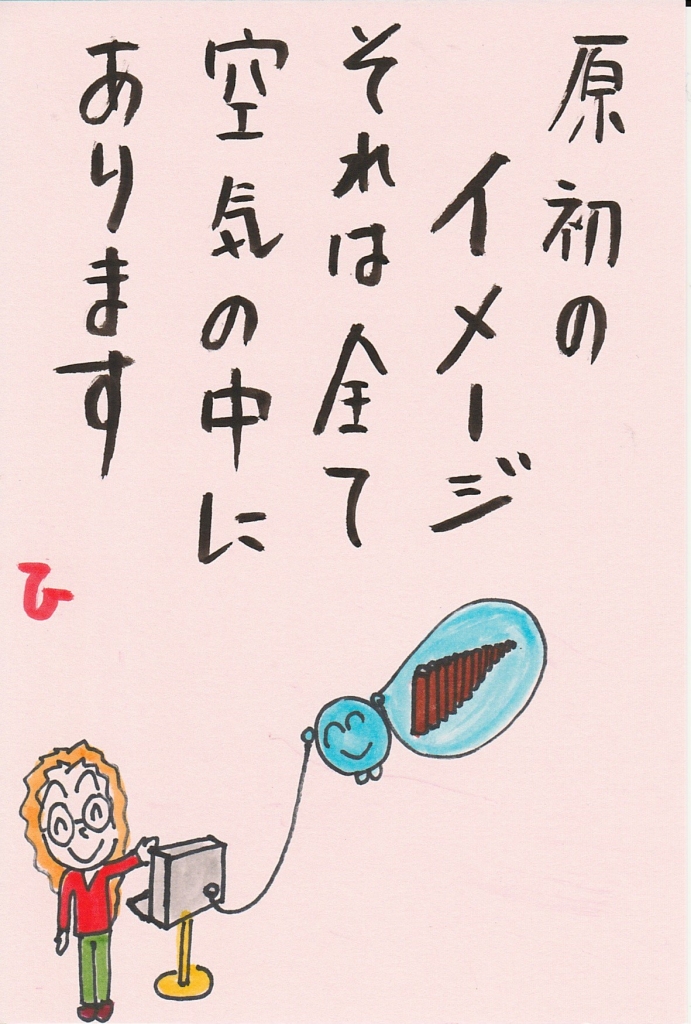 原初の
イメージ
それは全て
空気の中に
あります
ひ